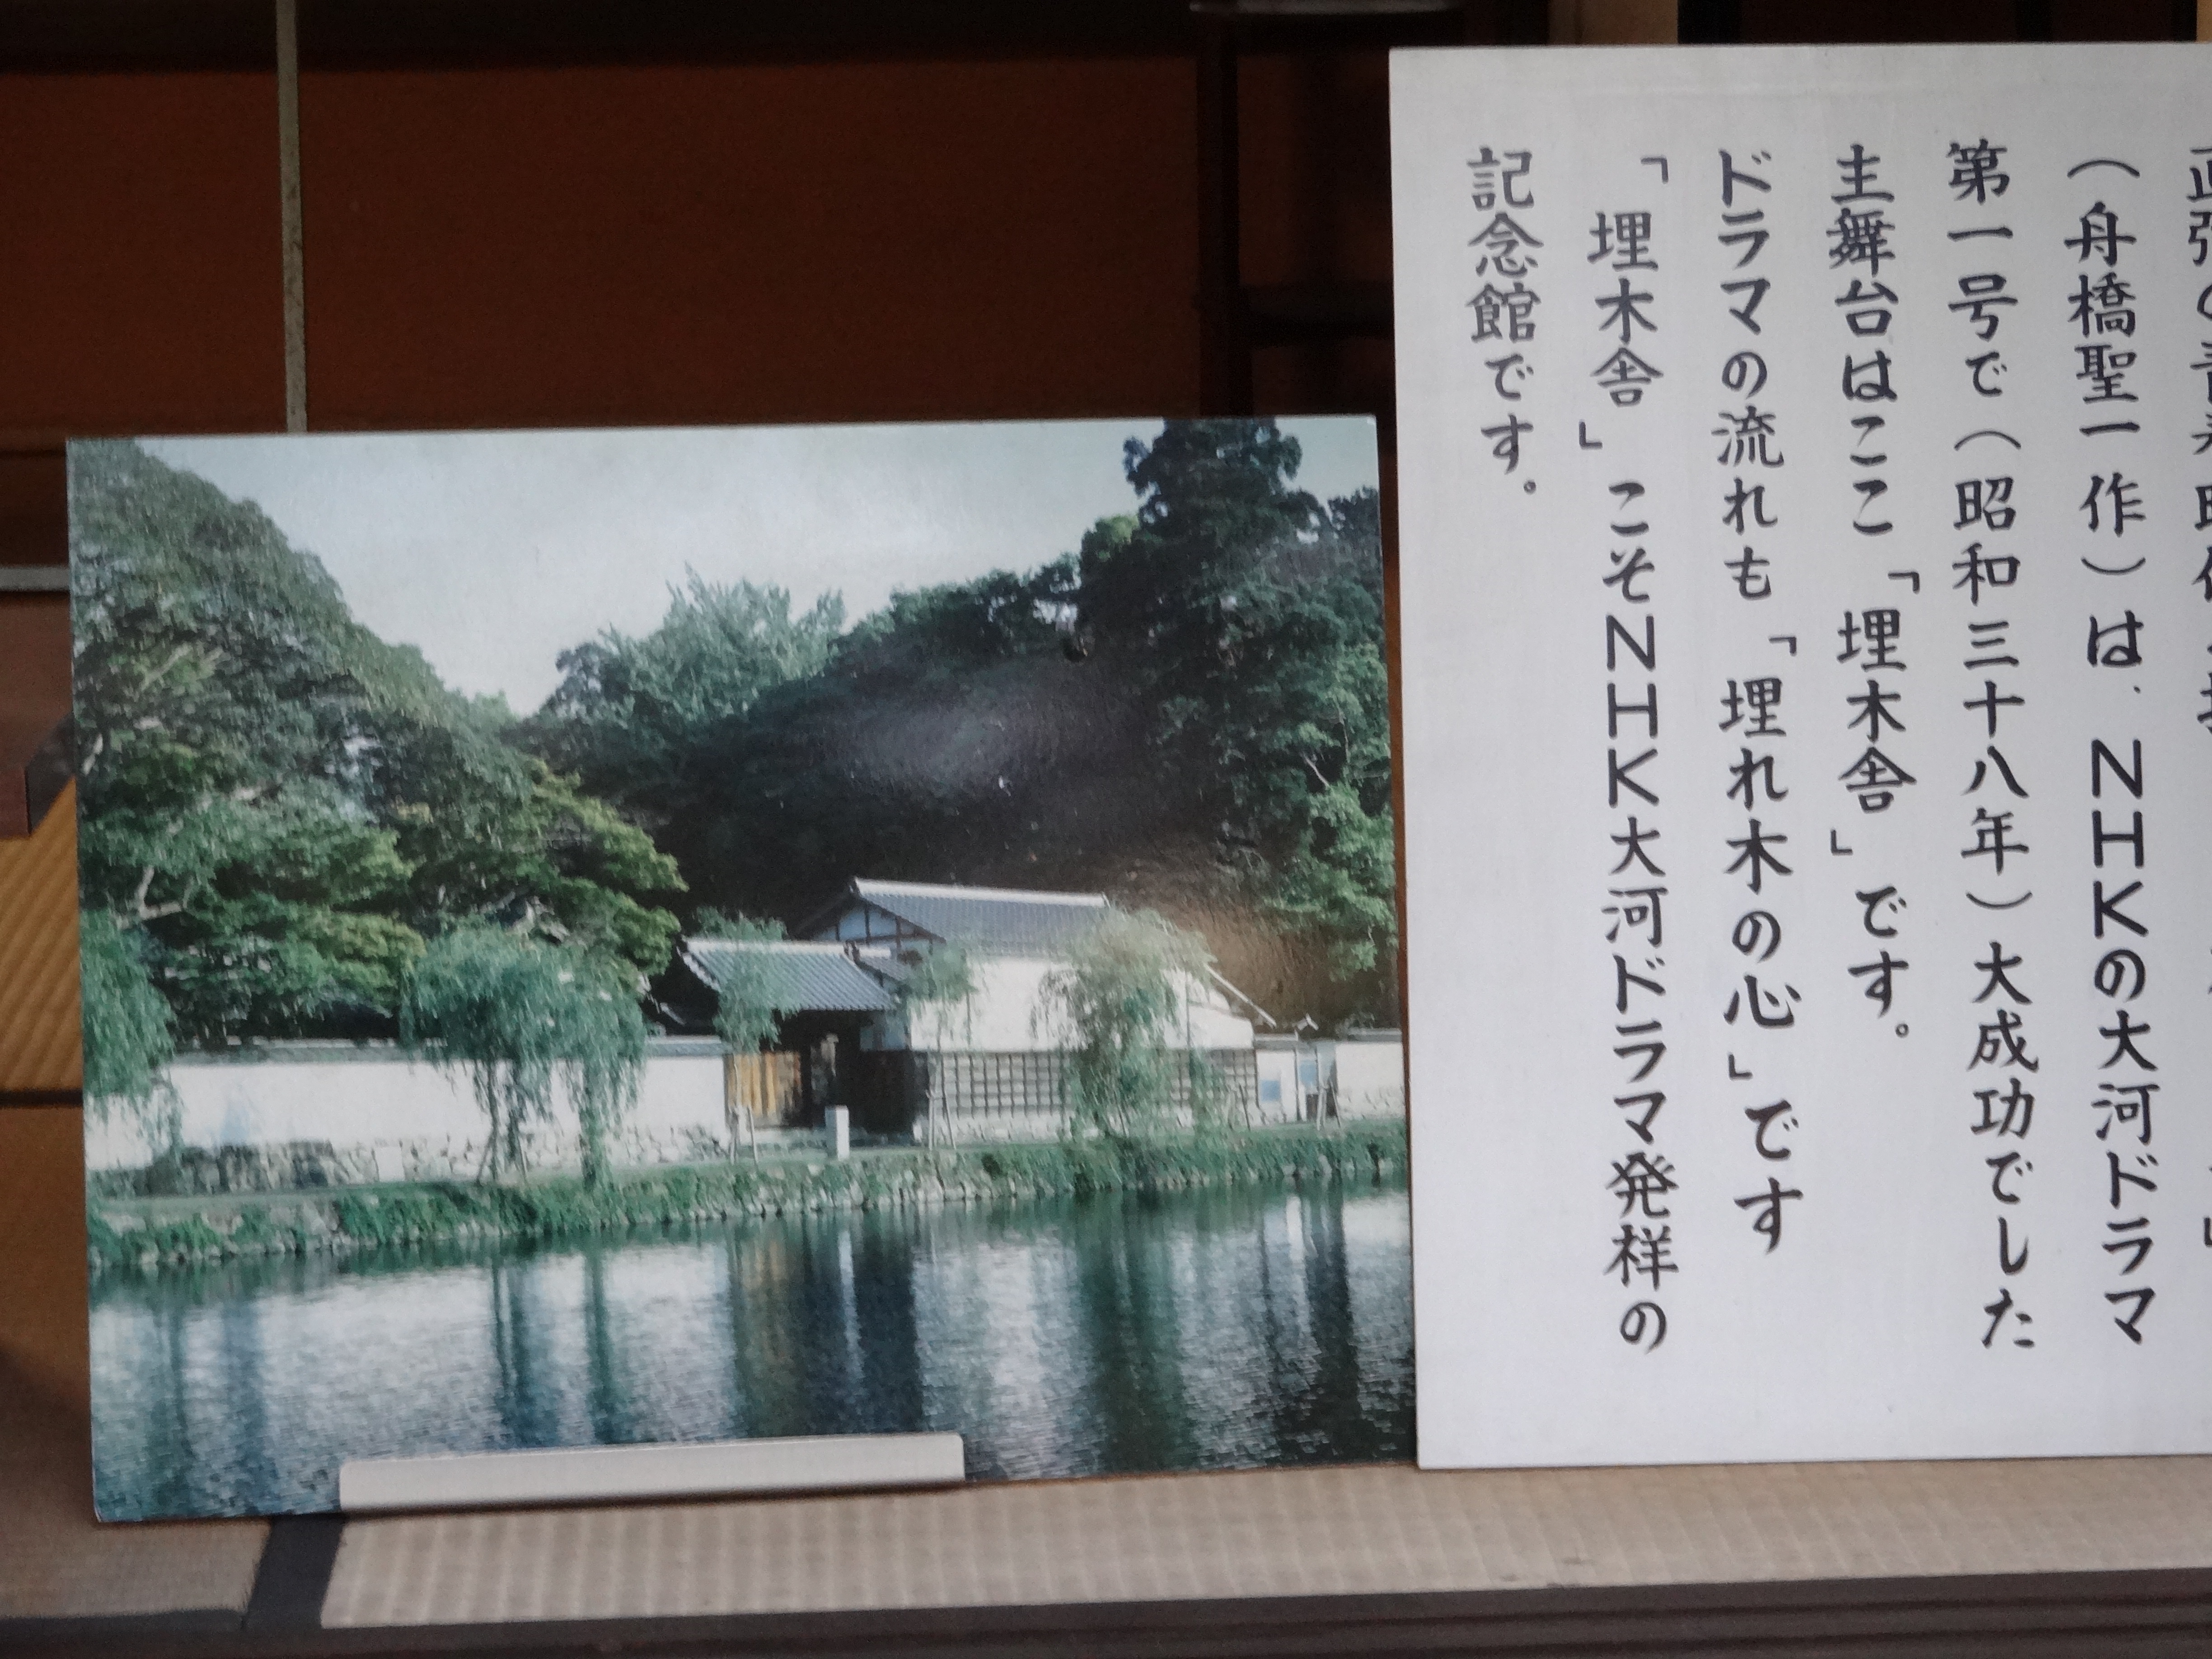 （舟橋聖一作）は、ＮＨＫの大河ドラマ
第一号で（昭和三十八年）大成功でした
主舞台はここ「埋木舎」です。
ドラマの流れも「埋れ木の心」です
「埋木舎」こそＮＨＫ大河ドラマ発祥の
記念館です。